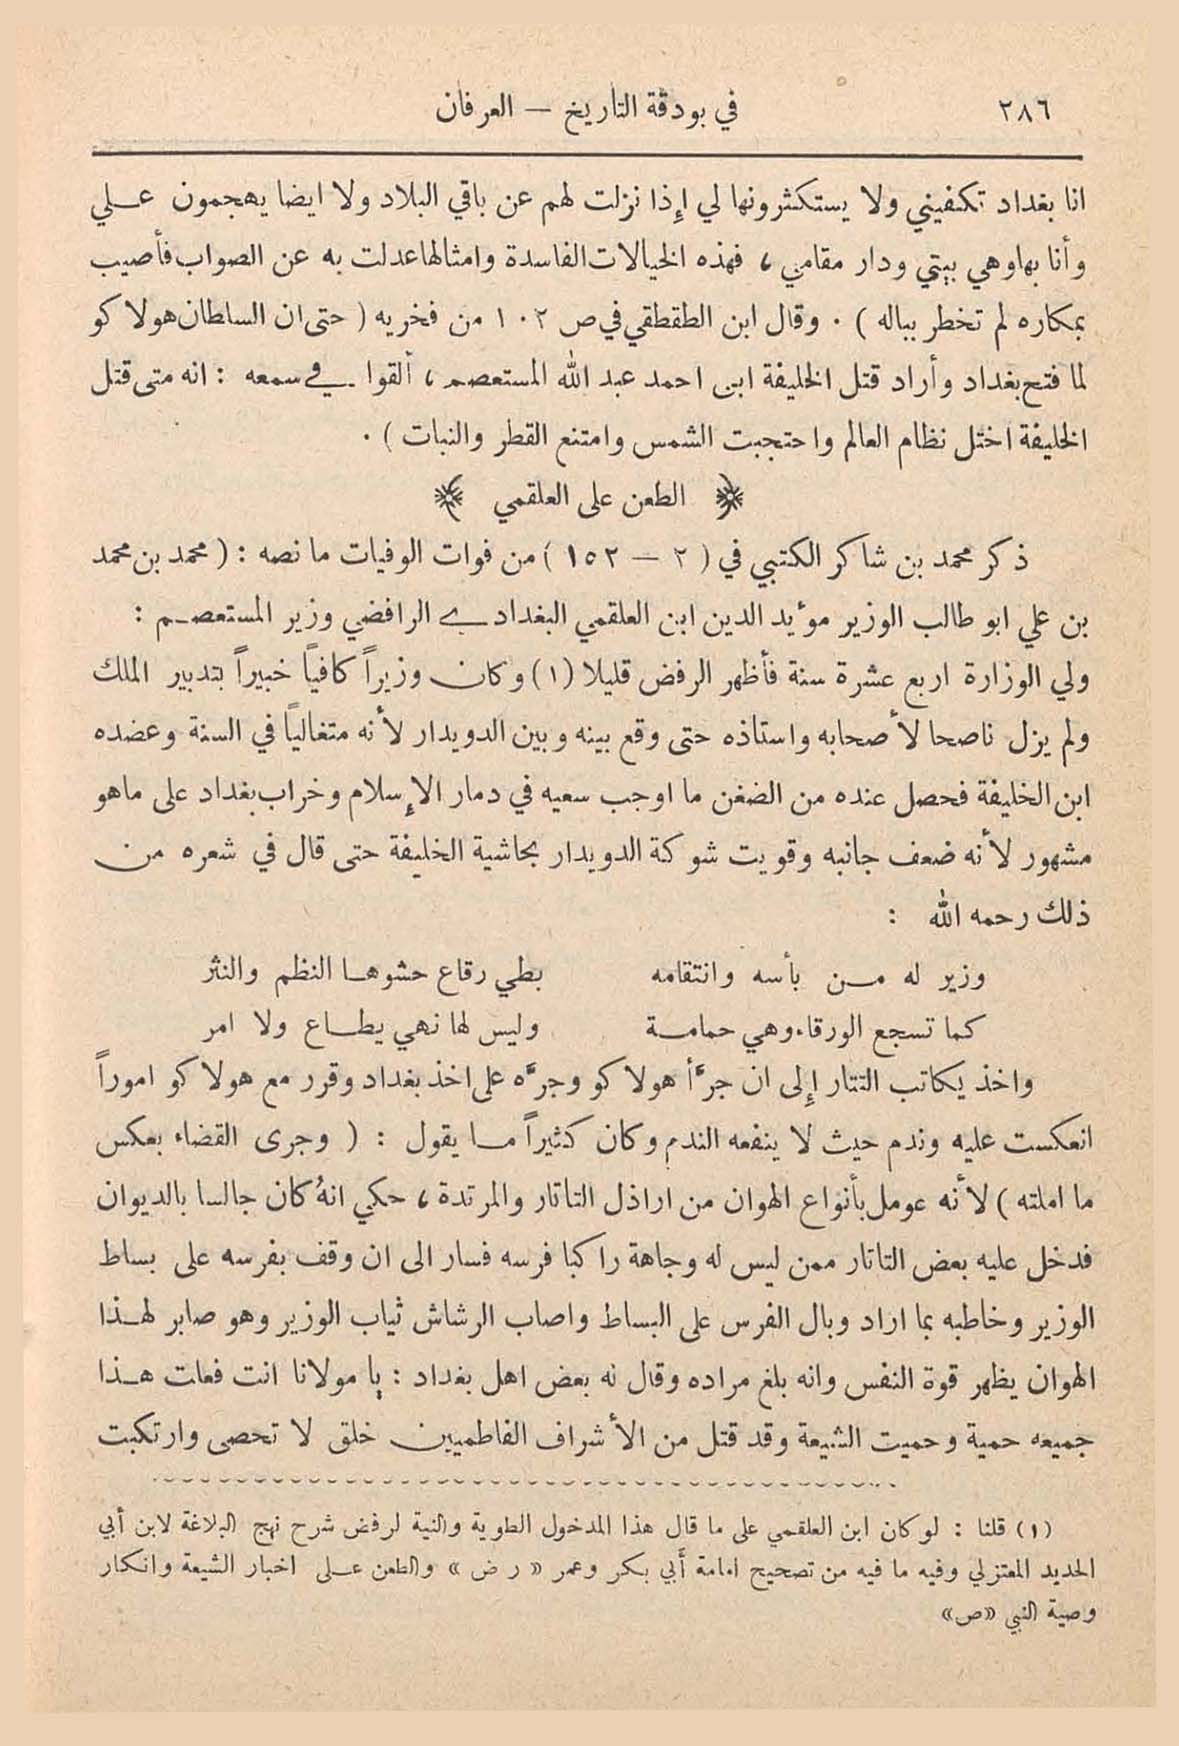 ٢٨٦
في بودقة التاريخ — العرفان
انا بغداد تكفيني ولا يستكثرونها لي إذا نزلت لهم عن باقي البلاد ولا ايضا يهجمون علي
وأنا بها وهي بيتي ودار مقامي ، فهذه الخيالات الفاسدة وامثالها عدلت به عن الصواب فأصيب
بمكاره لم تخطر بباله ) . وقال ابن الطقطقي في ص ١٠٢ من فخريه ( حتى ان السلطان هولاكو
لما فتح بغداد وأراد قتل الخليفة ابي احمد عبد الله المستعصم ، ألقوا في سمعه : انه متى قتل
الخليفة اختل نظام العالم واحتجبت الشمس وامتنع القطر والنبات ) .
الطعن على العلقمي
ذكر محمد بن شاكر الكتبي في ( ٢ — ١٥٢ ) من فوات الوفيات ما نصه : ( محمد بن محمد
بن علي ابو طالب الوزير مؤيد الدين ابن العلقمي البغدادي الرافضي وزير المستعصم :
ولي الوزارة اربع عشرة سنة فأظهر الرفض قليلا (١) وكان وزيراً كافياً خبيراً بتدبير الملك
ولم يزل ناصحا لأصحابه واستاذه حتى وقع بينه وبين الدويدار لأنه متغالياً في السنة وعضده
ابن الخليفة فحصل عنده من الضغن ما اوجب سعيه في دمار الإسلام وخراب بغداد على ماهو
مشهور لأنه ضعف جانبه وقويت شوكة الدويدار بحاشية الخليفة حتى قال في شعره من
ذلك رحمه الله :
وزير له من بأسه وانتقامه بطي رقاع حشوها النظم والنثر
كما تسجع الورقاء وهي حمامة وليس لها نهي يطاع ولا امر
واخذ يكاتب التتار إلى ان جرّأ هولاكو وجرّه على اخذ بغداد وقرر مع هولاكو اموراً
انعكست عليه وندم حيث لا ينفعه الندم وكان كثيراً ما يقول : ( وجرى القضاء بعكس
ما املته ) لأنه عومل بأنواع الهوان من اراذل التاتار والمرتدة ، حكي انه كان جالسا بالديوان
فدخل عليه بعض التاتار ممن ليس له وجاهة راكبا فرسه فسار الى ان وقف بفرسه على بساط
الوزير وخاطبه بما اراد وبال الفرس على البساط واصاب الرشاش ثياب الوزير وهو صابر لهذا
الهوان يظهر قوة النفس وانه بلغ مراده وقال له بعض اهل بغداد : يا مولانا انت فعلت هذا
جميعه حمية وحميت الشيعة وقد قتل من الأشراف الفاطميين خلق لا تحصى وارتكبت
(١) قلنا : لو كان ابن العلقمي على ما قال هذا المدخول الطوية والنية لرفض شرح نهج البلاغة لابن أبي
الحديد المعتزلي وفيه ما فيه من تصحيح امامة أبي بكر وعمر «رض» والطعن على اخبار الشيعة وانكار
وصية النبي «ص»